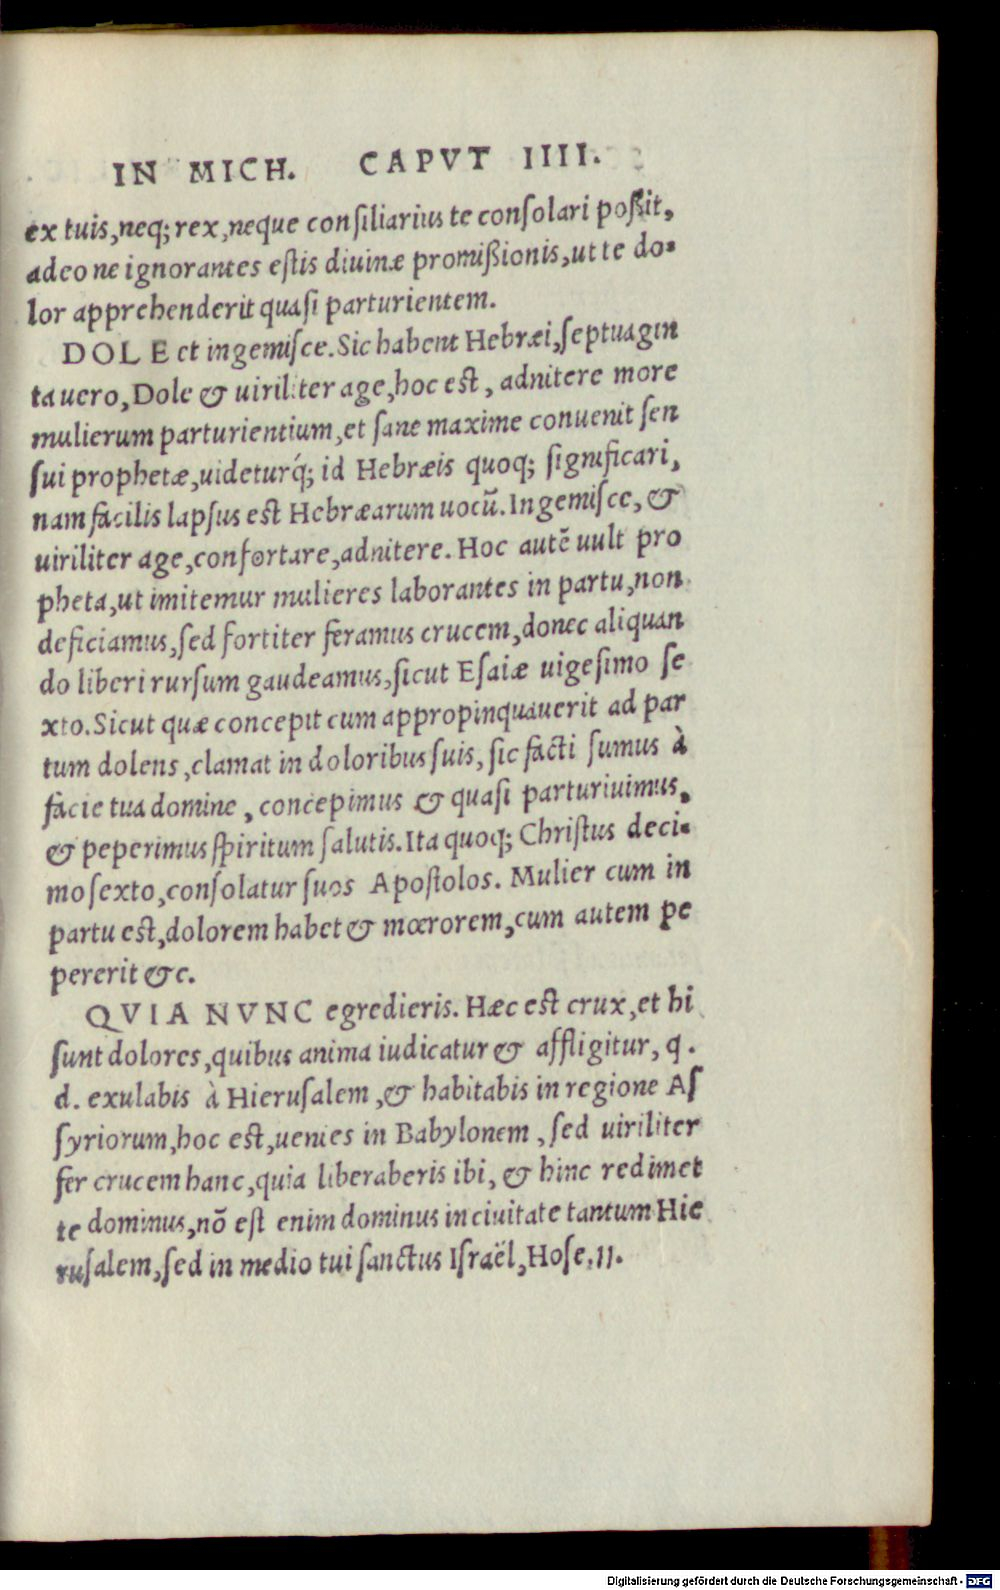 IN MICH. CAPVT IIII.
ex tuis, neq; rex, neque consiliarius te consolari poßit,
adeo ne ignorantes estis diuinæ promißionis, ut te do-
lor apprehenderit quasi parturientem.
DOLE et ingemisce. Sic habent Hebræi, septuagin
ta uero, Dole & uiriliter age, hoc est, adnitere more
mulierum parturientium, et sane maxime conuenit sen
sui prophetæ, uideturq́; id Hebræis quoq; significari,
nam facilis lapsus est Hebræarum uocū. Ingemisce, &
uiriliter age, confortare, adnitere. Hoc autē uult pro
pheta, ut imitemur mulieres laborantes in partu, non
deficiamus, sed fortiter feramus crucem, donec aliquan
do liberi rursum gaudeamus, sicut Esaiæ uigesimo se
xto. Sicut quæ concepit cum appropinquauerit ad par
tum dolens, clamat in doloribus suis, sic facti sumus à
facie tua domine, concepimus & quasi parturiuimus,
& peperimus spiritum salutis. Ita quoq; Christus deci-
mo sexto, consolatur suos Apostolos. Mulier cum in
partu est, dolorem habet & mœrorem, cum autem pe
pererit &c.
QVIA NVNC egredieris. Hæc est crux, et hi
sunt dolores, quibus anima iudicatur & affligitur, q.
d. exulabis à Hierusalem, & habitabis in regione As
syriorum, hoc est, uenies in Babylonem, sed uiriliter
fer crucem hanc, quia liberaberis ibi, & hinc redimet
te dominus, nō est enim dominus in ciuitate tantum Hie
rusalem, sed in medio tui sanctus Israël, Hose. 11.
Digitalisierung gefördert durch die Deutsche Forschungsgemeinschaft - DFG